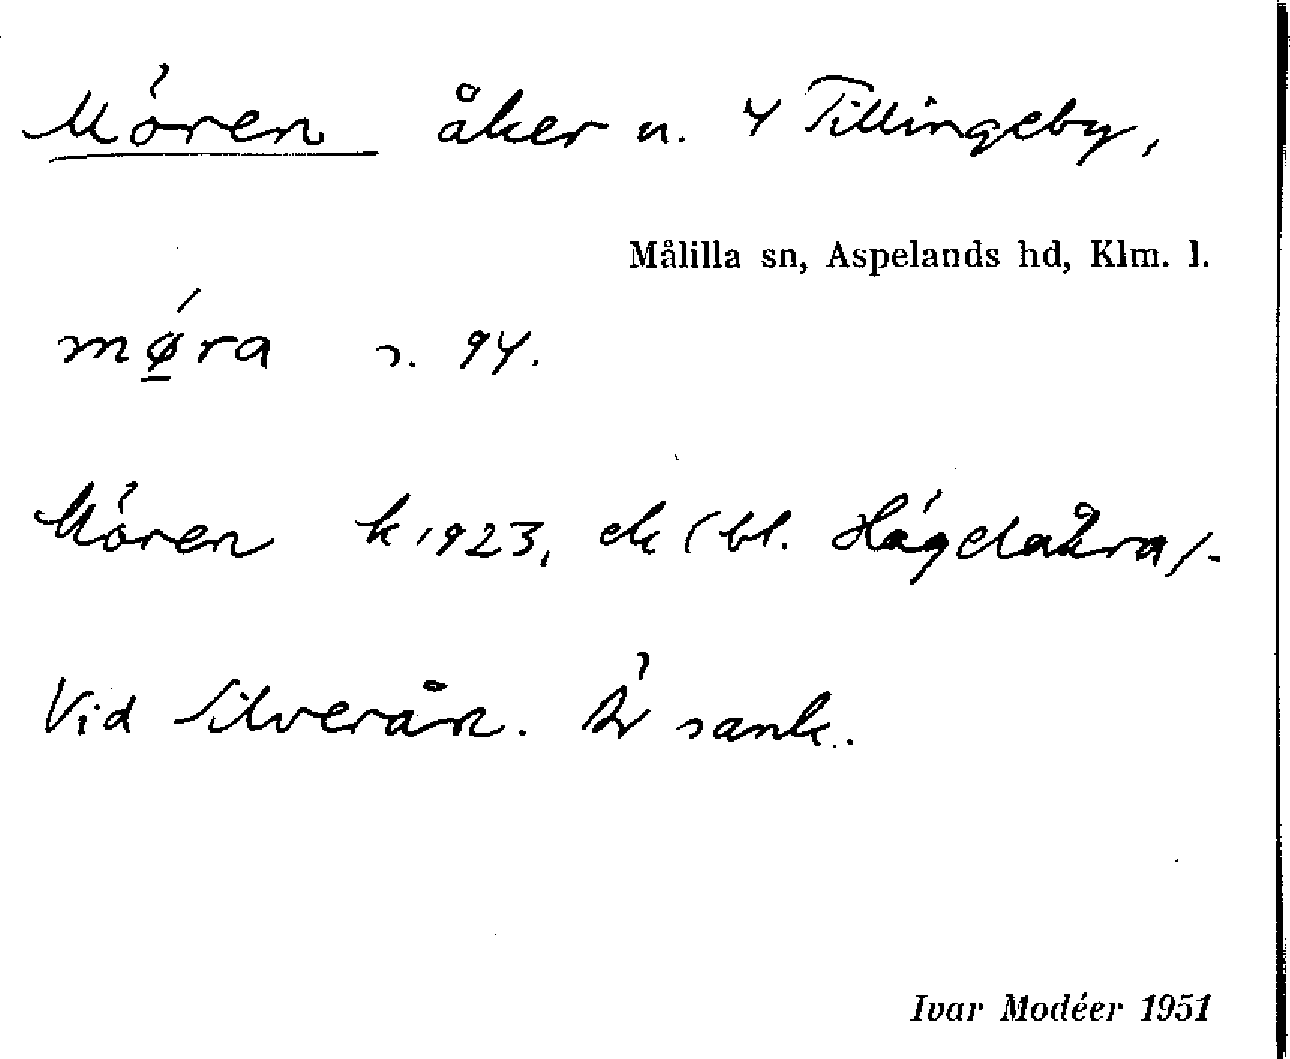 Mören åker u. 4 Tillingeby,
Målilla sn, Aspelands hd, Klm. l.
mǿ̱ra s. 94.
Mören k 1923, ek (bl. Högdaåkra).
Vid Silverån. Är sank.
Ivar Modéer 1951